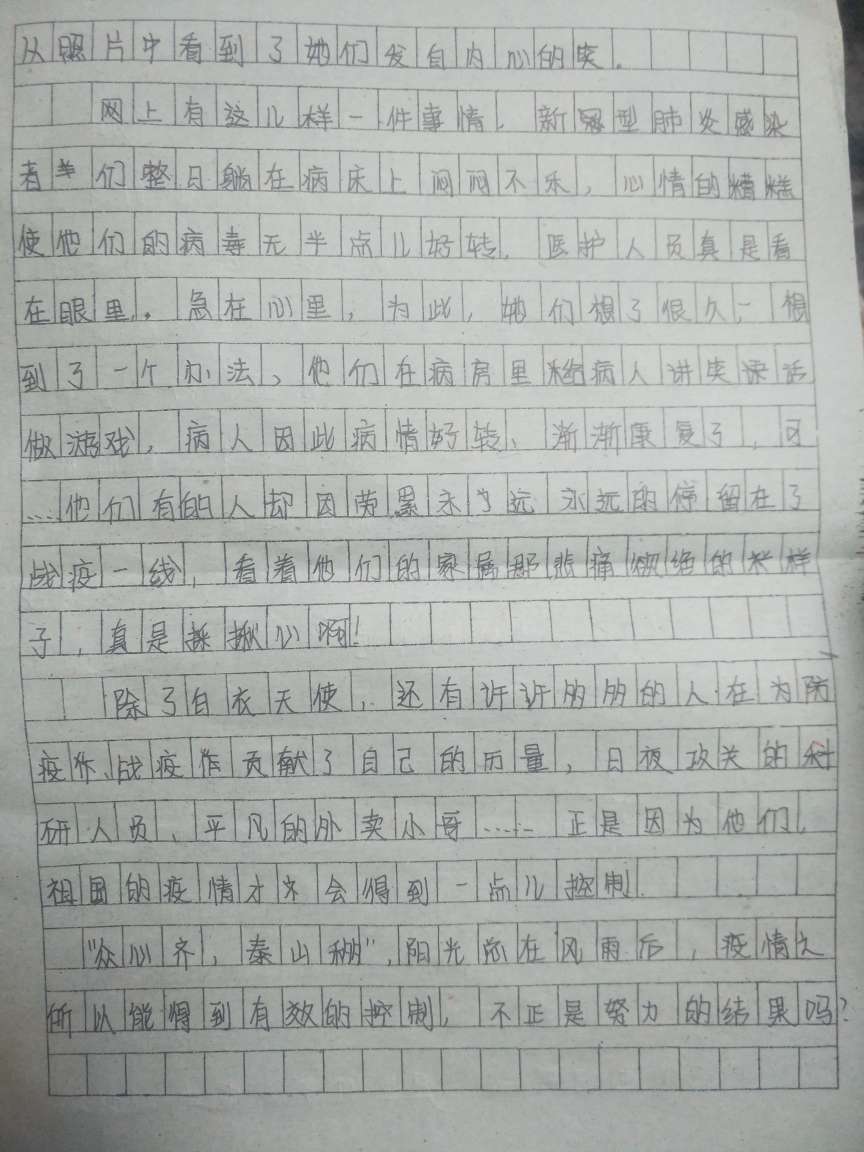 从照片中看到了她们发自内心的笑.
网上有这儿样一件事情.新冠型肺炎感染
者们整日躺在病床上闷闷不乐,心情的糟糕
使他们的病毒无半点儿好转.医护人员真是看
在眼里.急在心里,为此,她们想了很久,想
到了一个办法,他们在病房里给病人讲笑话
做游戏,病人因此病情好转、渐渐康复了,可
……他们有的人却因劳累永远永远的停留在了
战疫一线,看着他们的家属那悲痛欲绝的样
子,真是揪心啊!
除了白衣天使,还有许许多多的人在为防
疫作、战疫作贡献了自己的历量,日夜攻关的科
研人员、平凡的外卖小哥……正是因为他们,
祖国的疫情才会得到一点儿控制.
“众心齐,泰山移”,阳光总在风雨后,疫情之
所以能得到有效的控制,不正是努力的结果吗?